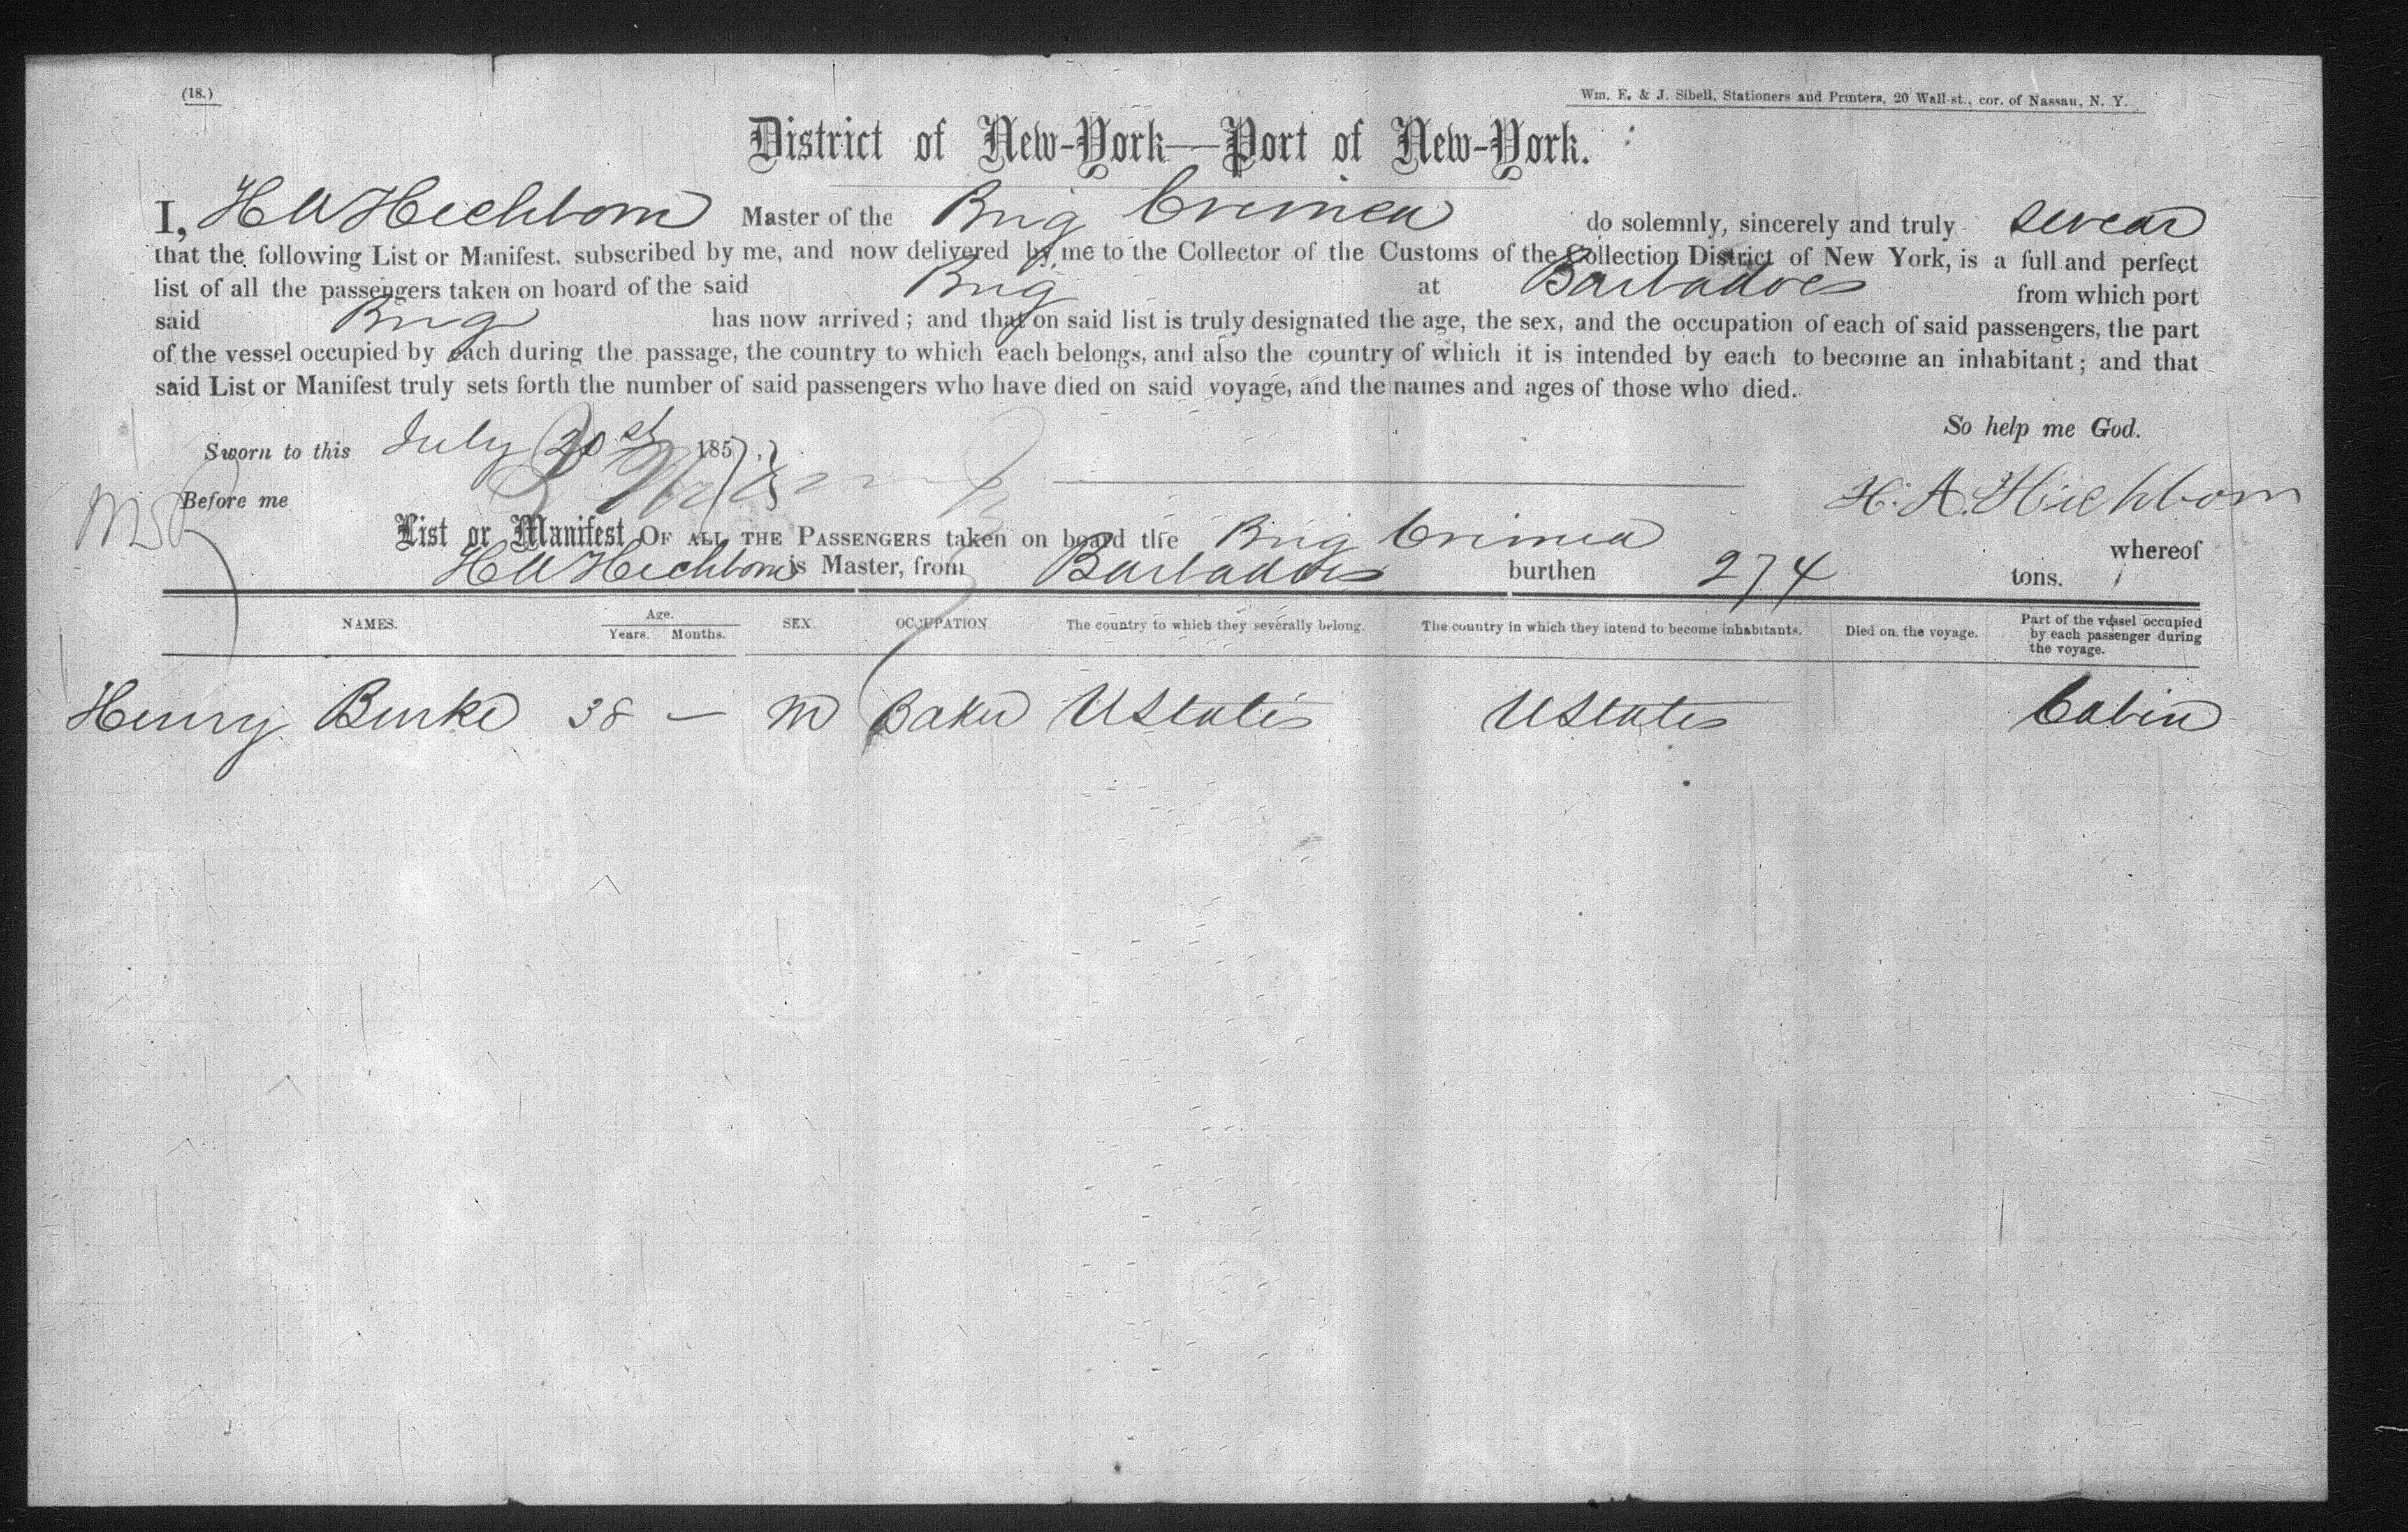 (18.)
Wm. E. & J. Sibell, Stationers and Printers, 20 Wall-st., cor. of Nassau, N. Y.
District of New-York—Port of New-York.
I, H A Hichborn Master of the Brig Crimea do solemnly, sincerely and truly swear
that the following List or Manifest, subscribed by me, and now delivered by me to the Collector of the Customs of the Collection District of New York, is a full and perfect
list of all the passengers taken on board of the said Brig at Barbadoes from which port
said Brig has now arrived; and that on said list is truly designated the age, the sex, and the occupation of each of said passengers, the part
of the vessel occupied by each during the passage, the country to which each belongs, and also the country of which it is intended by each to become an inhabitant; and that
said List or Manifest truly sets forth the number of said passengers who have died on said voyage, and the names and ages of those who died.
So help me God.
Sworn to this July 185
Before me
H. A. Hichborn
List or Manifest OF ALL THE PASSENGERS taken on board the Brig Crimea whereof
H A Hichborn is Master, from Barbadoes burthen 274 tons.
NAMES. Age. Years. Months. SEX. OCCUPATION The country to which they severally belong. The country in which they intend to become inhabitants. Died on the voyage. Part of the vessel occupied by each passenger during the voyage.
Henry Burke 38 — M Baker UStates UStates Cabin